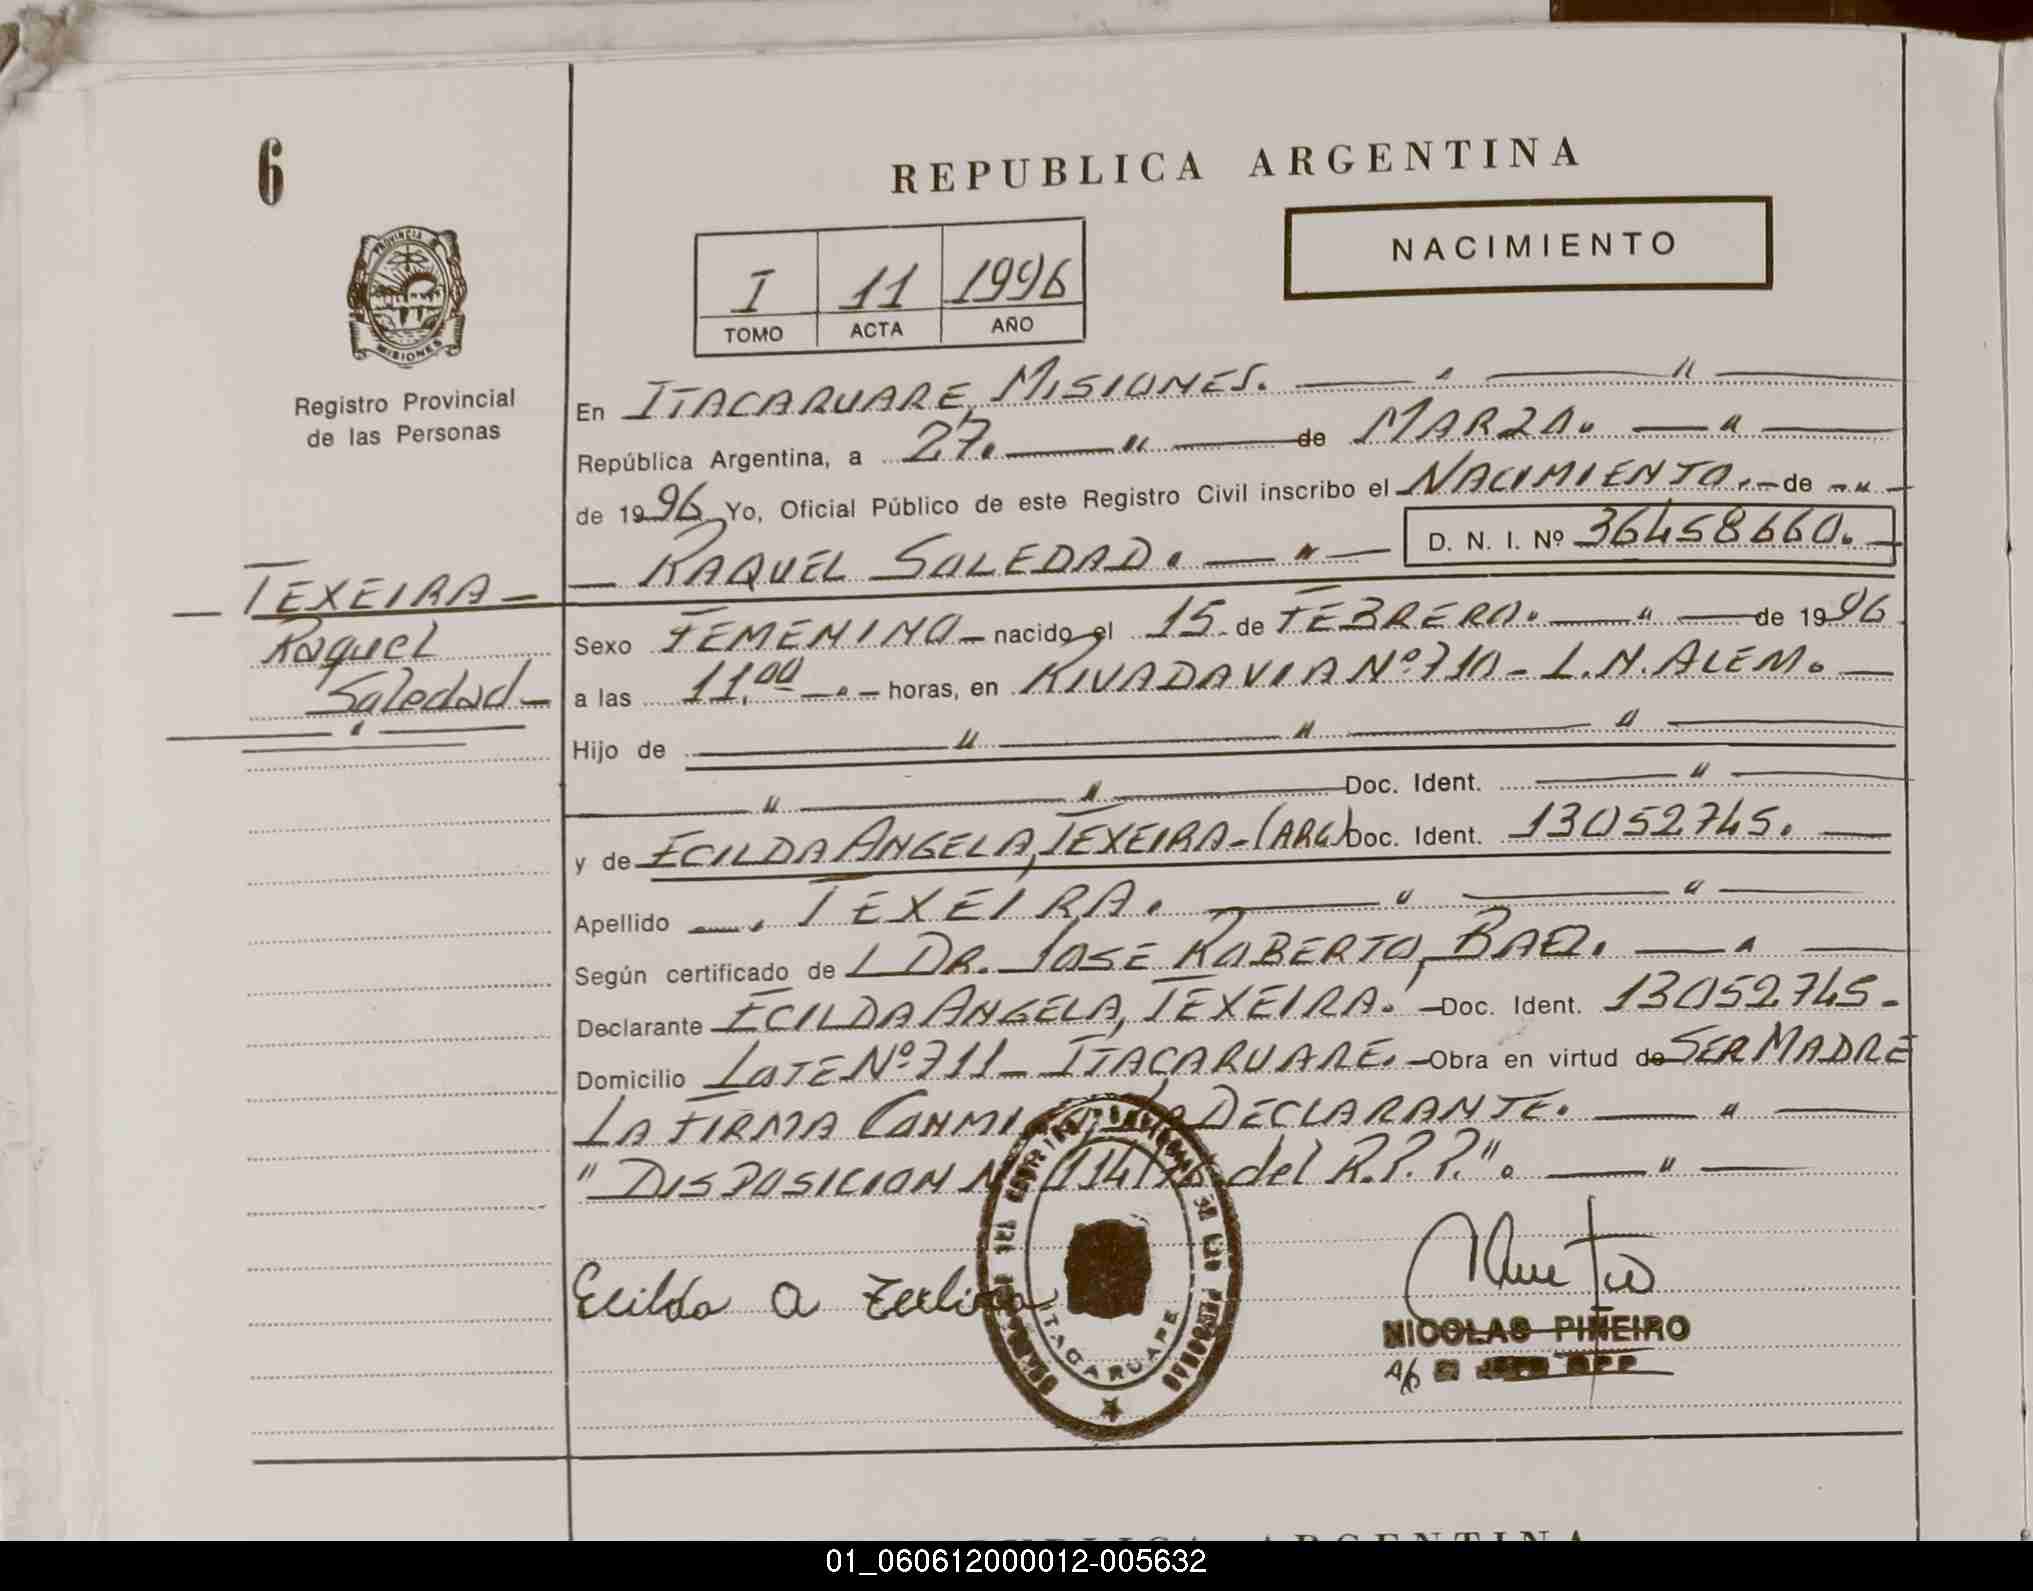 6
REPUBLICA ARGENTINA
NACIMIENTO
I 11 1996
TOMO ACTA AÑO
PROVINCIA
MISIONES
Registro Provincial
de las Personas
TEXEIRA
Raquel
Soledad
En ITACARUARE, MISIONES.
República Argentina, a 27. de MARZO.
de 1996 Yo, Oficial Público de este Registro Civil inscribo el NACIMIENTO. de
RAQUEL SOLEDAD. D. N. I. Nº 36458660.
Sexo FEMENINO nacido el 15 de FEBRERO. de 1996
a las 11,00 horas, en RIVADAVIA Nº 710 - L.N. ALEM.
Hijo de
Doc. Ident.
y de ECILDA ANGELA, TEXEIRA-(ARG) Doc. Ident. 13052745.
Apellido TEXEIRA.
Según certificado de DR. JOSE ROBERTO, BAEZ.
Declarante ECILDA ANGELA, TEXEIRA. Doc. Ident. 13052745-
Domicilio LOTE Nº 711 - ITACARUARE. Obra en virtud de SER MADRE
LA FIRMA DECLARANTE.
"DISPOSICION del R.P.P."
Ecilda a
ITACARUARE
NICOLAS PIÑEIRO
REPUBLICA ARGENTINA
01_060612000012-005632